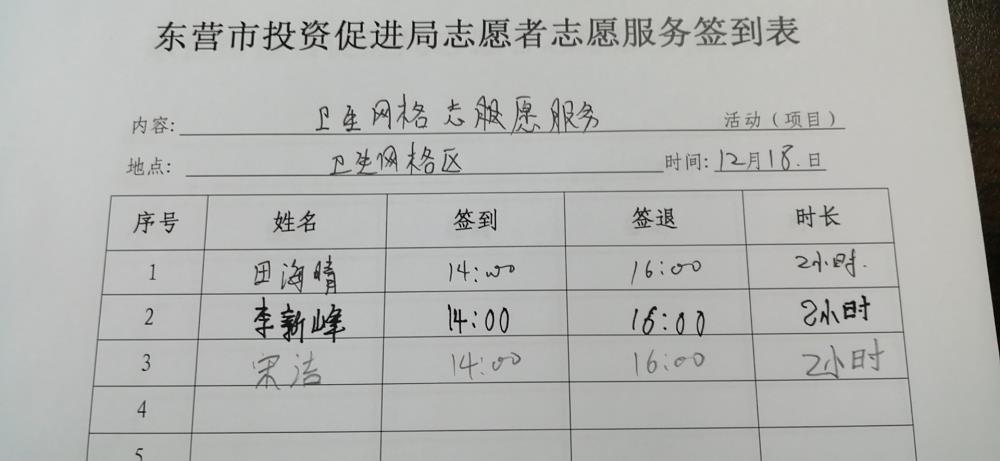 东营市投资促进局志愿者志愿服务签到表
内容: 卫生网格志服愿服务 活动（项目）
地点: 卫生网格区 时间: 12月18.日
序号 姓名 签到 签退 时长
1 田海晴 14:00 16:00 2小时.
2 李新峰 14:00 16:00 2小时
3 宋洁 14:00 16:00 2小时
4
5